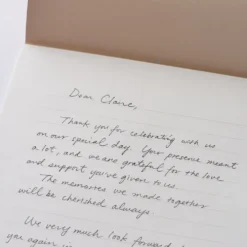 Dear Claire,
Thank you for celebrating with us
on our special day. Your presence meant
a lot, and we are grateful for the love
and support you've given to us.
The memories we made together
will be cherished always.
We very much look forward
you again